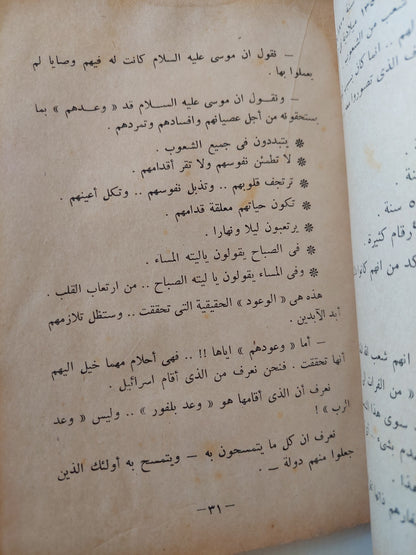 – فنقول ان موسى عليه السلام كانت له فيهم وصايا لم
يعملوا بها .
– ونقول ان موسى عليه السلام قد « وعدهم » بما
يستحقونه من أجل عصيانهم وافسادهم وتمردهم .
❋ يتبددون فى جميع الشعوب .
❋ لا تطمئن نفوسهم ولا تقر أقدامهم .
❋ ترتجف قلوبهم .. وتذبل نفوسهم .. وتكل أعينهم .
❋ تكون حياتهم معلقة قدامهم .
❋ يرتعبون ليلا ونهارا .
❋ فى الصباح يقولون ياليته المساء .
❋ وفى المساء يقولون يا ليته الصباح .. من ارتعاب القلب .
هذه هى « الوعود » الحقيقية التى تحققت .. وستظل تلازمهم
أبد الآبدين .
– أما « وعودهم » اياها !! .. فهى أحلام مهما خيل اليهم
أنها تحققت . فنحن نعرف من الذى أقام اسرائيل .
نعرف أن الذى أقامها هو « وعد بلفور » .. وليس « وعد
الرب » !
نعرف ان كل ما يتمسحون به – ويتمسح به أولئك الذين
جعلوا منهم دولة – .
– ٣١ –
شعب من
سنة .
٥ سنة .
أرقام كثيرة .
كد من انهم كانوا
انهم شعب الله
« من الفرات
سوى هذا